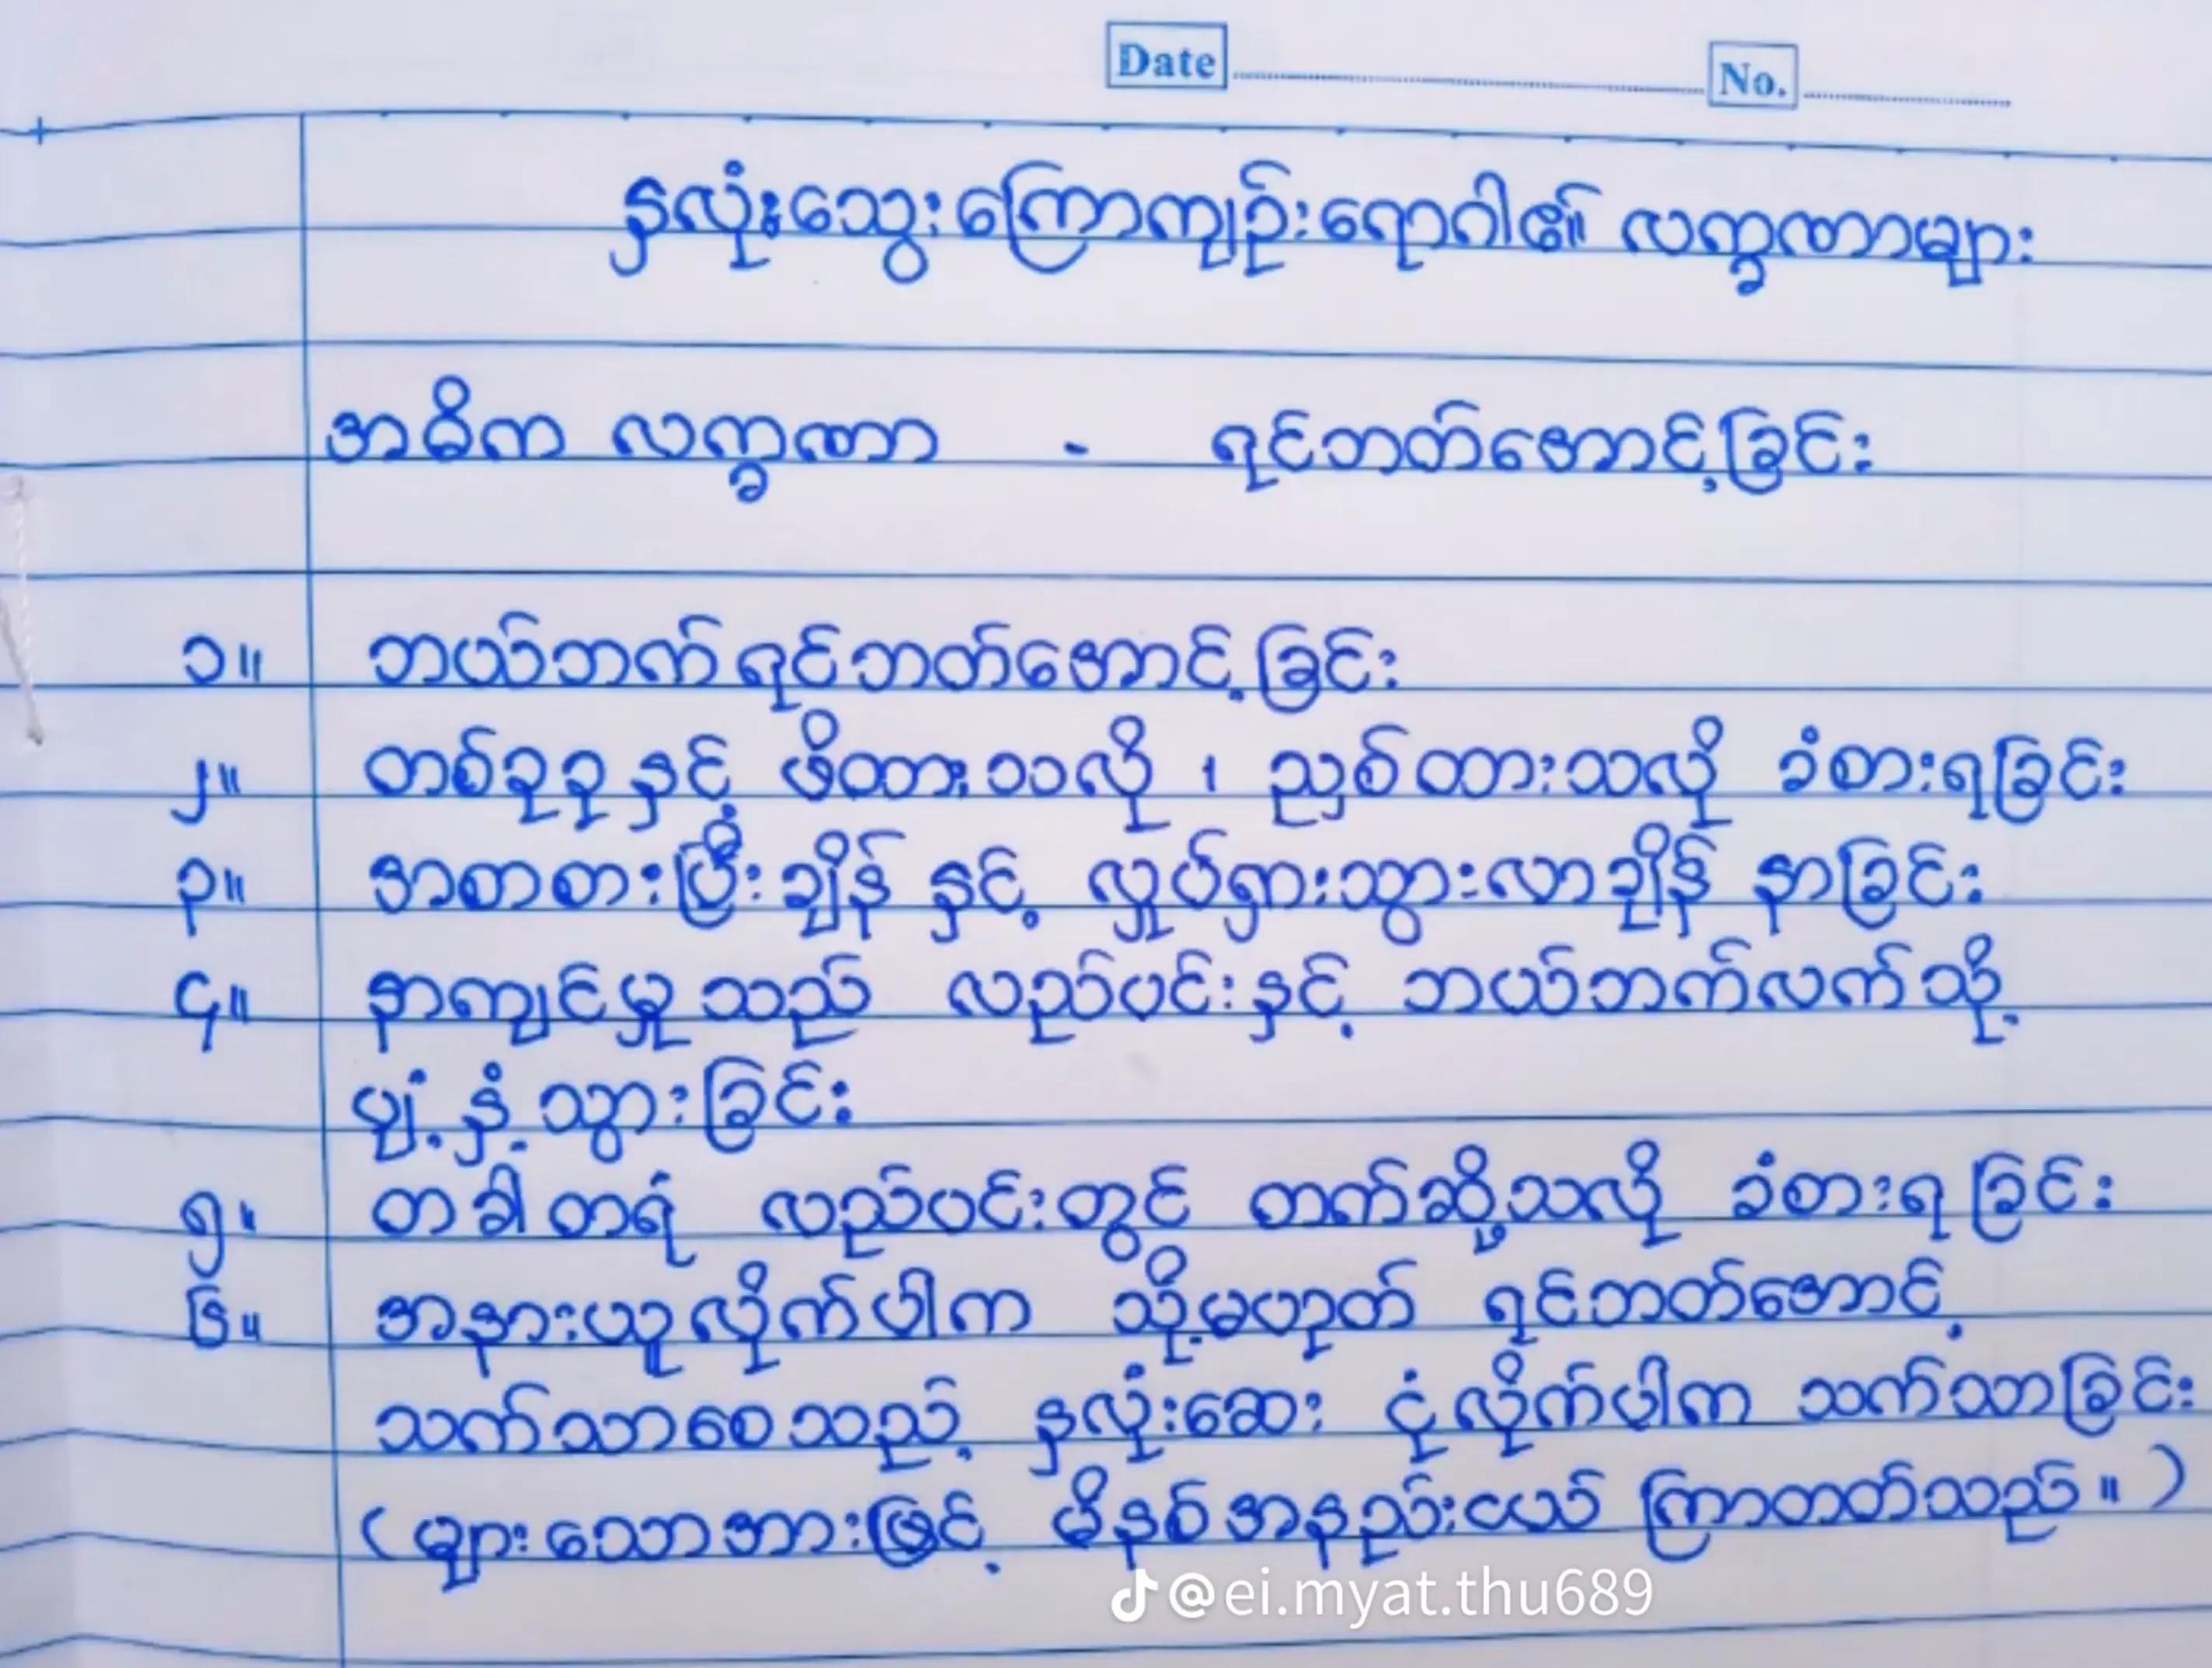 Date No.
နှလုံးသွေးကြောကျဉ်းရောဂါ၏ လက္ခဏာများ
အဓိက လက္ခဏာ - ရင်ဘတ်အောင့်ခြင်း
၁။ ဘယ်ဘက်ရင်ဘတ်အောင့်ခြင်း
၂။ တစ်ခုခုနှင့် ဖိထားသလို ၊ ညှစ်ထားသလို ခံစားရခြင်း
၃။ အစာစားပြီးချိန် နှင့် လှုပ်ရှားသွားလာချိန် နာခြင်း
၄။ နာကျင်မှုသည် လည်ပင်းနှင့် ဘယ်ဘက်လက်သို့
ပျံ့နှံ့သွားခြင်း
၅။ တခါတရံ လည်ပင်းတွင် တက်ဆို့သလို ခံစားရခြင်း
၆။ အနားယူလိုက်ပါက သို့မဟုတ် ရင်ဘတ်အောင့်
သက်သာစေသည့် နှလုံးဆေး ငုံလိုက်ပါက သက်သာခြင်း
(များသောအားဖြင့် မိနစ်အနည်းငယ် ကြာတတ်သည်။)
@ei.myat.thu689